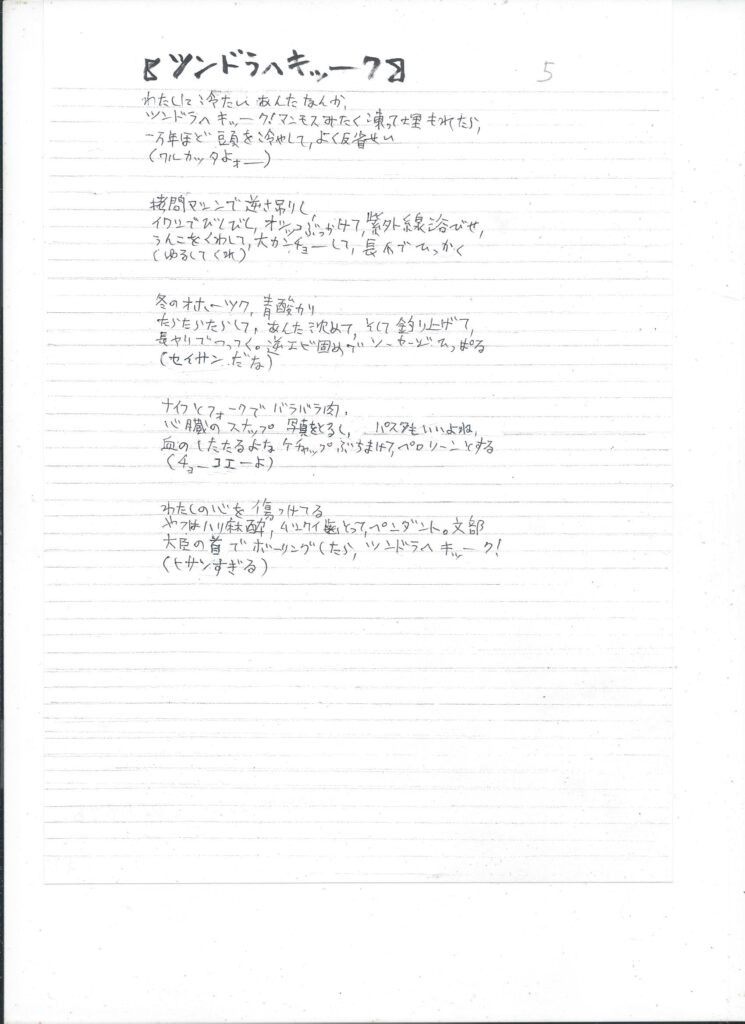 【ツンドラへキッーク】
5
わたしに冷たいあんたなんか、
ツンドラへキッーク!マンモスみたく凍って埋もれたら、
一万年ほど豆頭を冷やして、よく反省せい
(ワルカッタよォー)
拷問マシンで逆さ吊りし
イワシでびしびし、オシッコぶっかけて、紫外線浴びせ、
うんこをくわして、大カンチョーして、長爪でひっかく
(ゆるしてくれ)
冬のオホーツク、青酸カリ
たらたらたらして、あんた沈めて、そして釣り上げて、
長ヤリでつっつく。逆エビ固めでソーセージひっぱる
(セイサンだな)
ナイフとフォークでバラバラ肉、
心臓のスナップ写真をとるし、パスタもいいよね、
血のしたたるよなケチャップぶちまけて、ペロリーンとする
(チョーコエーよ)
わたしの心を傷つけてる
やつはハリ麻酔、ムシクイ歯とって、ペンダント。文部
大臣の首でボーリングしたら、ツンドラへキッーク!
(ヒサンすぎる)